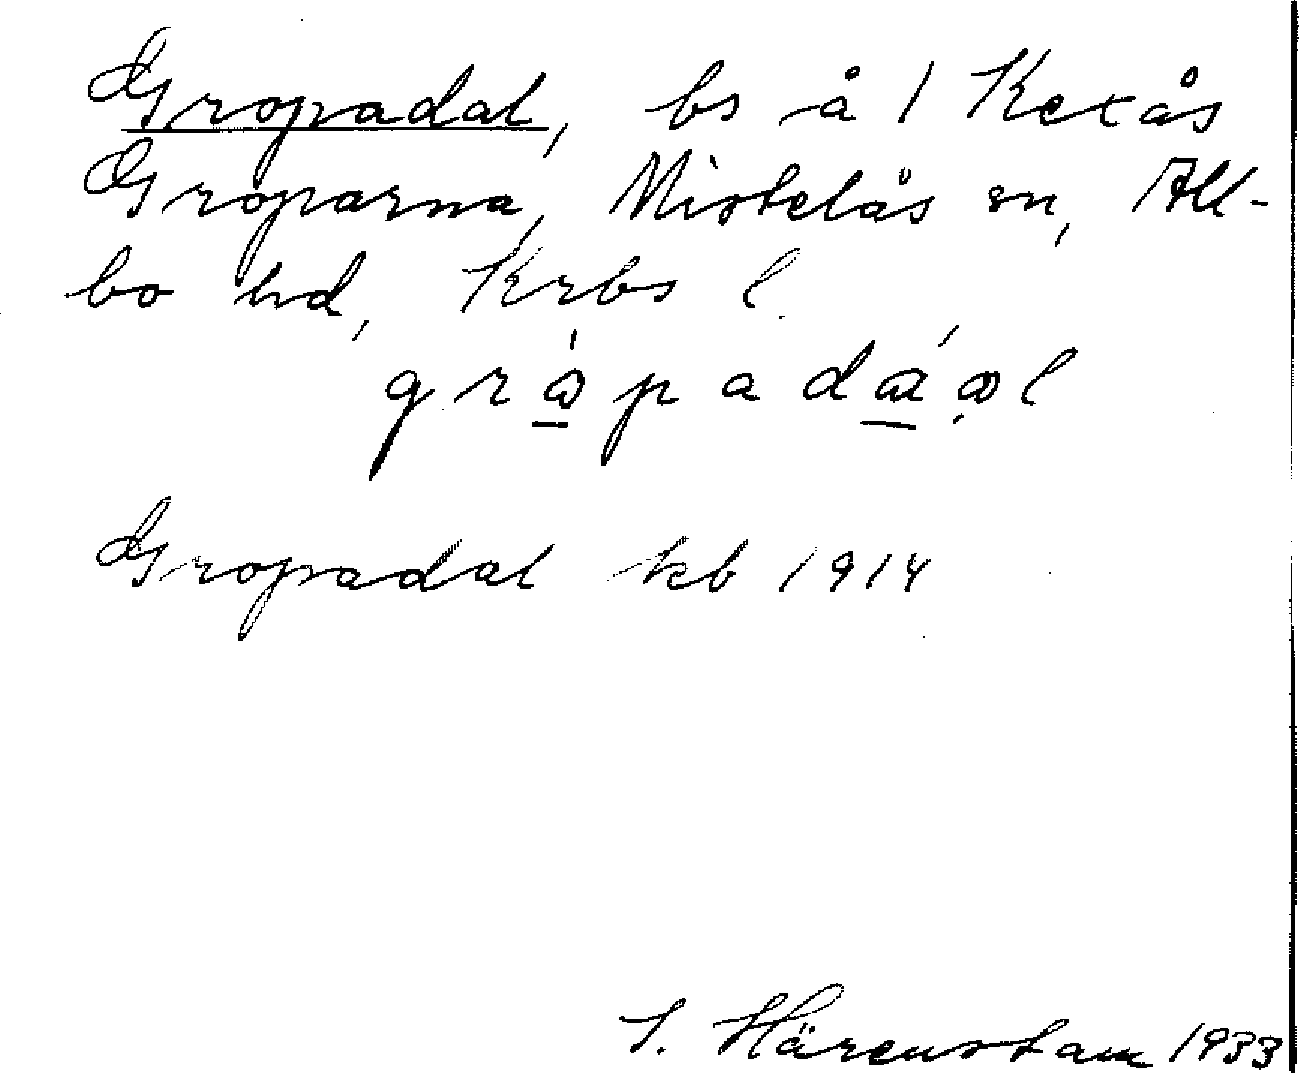 Gropadal, bs å 1 Kexås
Groparna, Mistelås sn, All-
bo hd, Krbs l.
Gropadal kb 1914
S. Härenstam 1933